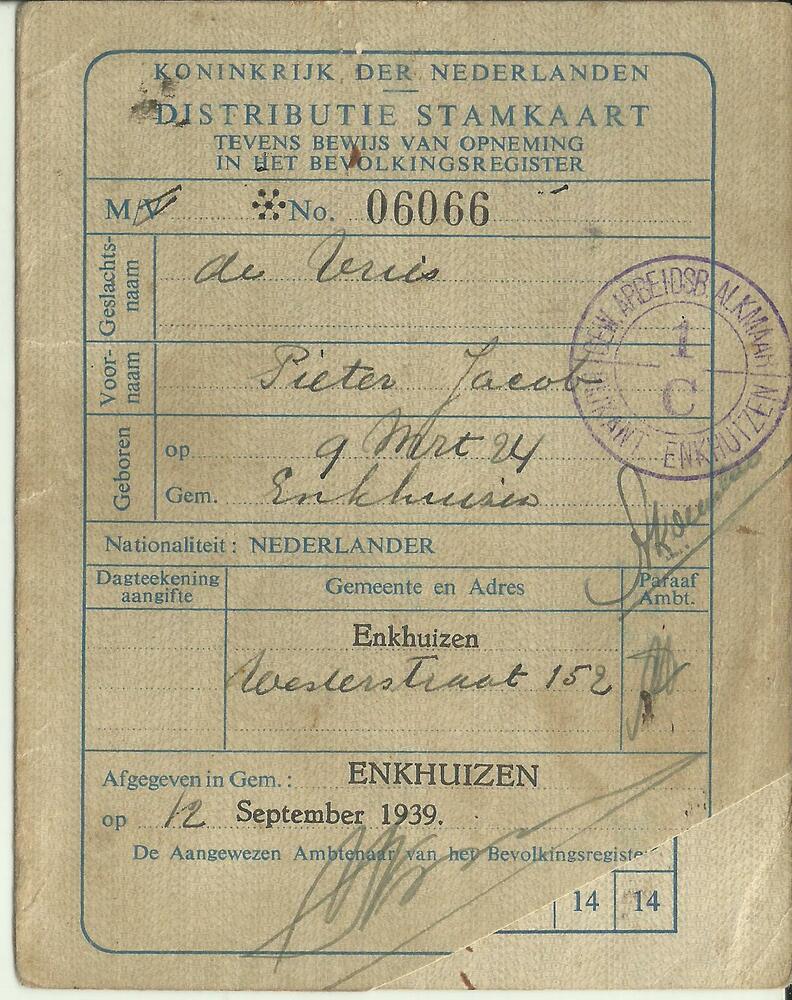 KONINKRIJK DER NEDERLANDEN
DISTRIBUTIE STAMKAART
TEVENS BEWIJS VAN OPNEMING
IN HET BEVOLKINGSREGISTER
M/V No. 06066
Geslachtsnaam de Vries
Voornaam Pieter Jacob
GEW. ARBEIDSB. ALKMAAR
1
C
BIJKANT. ENKHUIZEN
Geboren op 9 Mrt 24
Gem. Enkhuizen
Nationaliteit: NEDERLANDER
Dagteekening aangifte
Gemeente en Adres
Paraaf Ambt.
Enkhuizen
Westerstraat 152
Afgegeven in Gem.: ENKHUIZEN
op 12 September 1939.
De Aangewezen Ambtenaar van het Bevolkingsregister
14 14